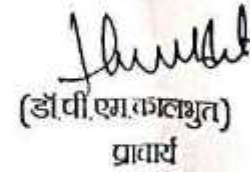 (डॉ.पी.एम.कालभुत)
प्राचार्य